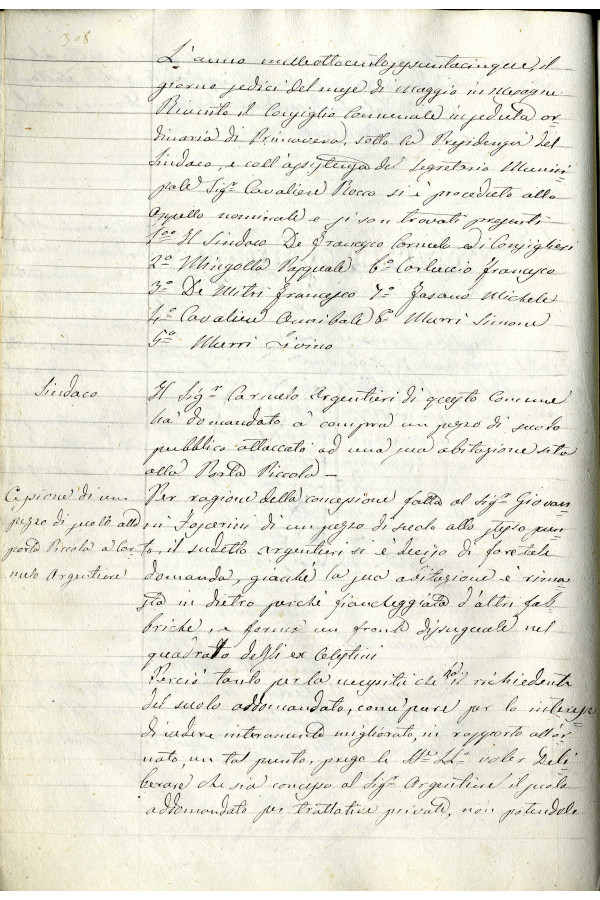 308
L'anno milleottocentosessantacinque, il
giorno sedici del mese di Maggio in Mesagne
Riunito il Consiglio Comunale in seduta or-
dinaria di Primavera, sotto la Presidenza del
Sindaco, e coll'assistenza del Segretario Munici-
pale Sigr Cavaliere Rocco si è proceduto allo
appello nominale e si son trovati presenti
1o Il Sindaco De Francesco Carmelo ed i Consiglieri
2o Mingolla Pasquale 6o Carluccio Francesco
3o De Mitri Francesco 7o Fasano Michele
4o Cavaliere Annibale 8o Murri Simone
5o Murri Livino
Sindaco
Il Sigr Carmelo Argentieri di questo Comune
ha domandato a compra un pezzo di suolo
pubblico attaccato ad una sua abitazione sita
alla Porta Piccola —
Cessione di un
pezzo di suolo alla
porta Piccola a Car-
melo Argentiere
Per ragione della concessione fatta al Sigr Giovan-
ni di un pezzo di suolo allo stesso pun-
to, il sudetto Argentieri si è deciso di fare tale
domanda, giacchè la sua abitazione è rima-
sta in dietro perchè fiancheggiata d'altri fab-
briche, e forma un fronte disuguale nel
quadrato degli ex Celestini
Perciò tanto per la necessità che ne à il richiedente
del suolo addomandato, come pure per lo interesse
di vedere interamente migliorato, in rapporto all'or-
nato un tal punto, prego le SS.e LL.e voler Deli-
berare che sia concesso al Sigr Argentiere il suolo
addomandato per trattative private, non potendolo